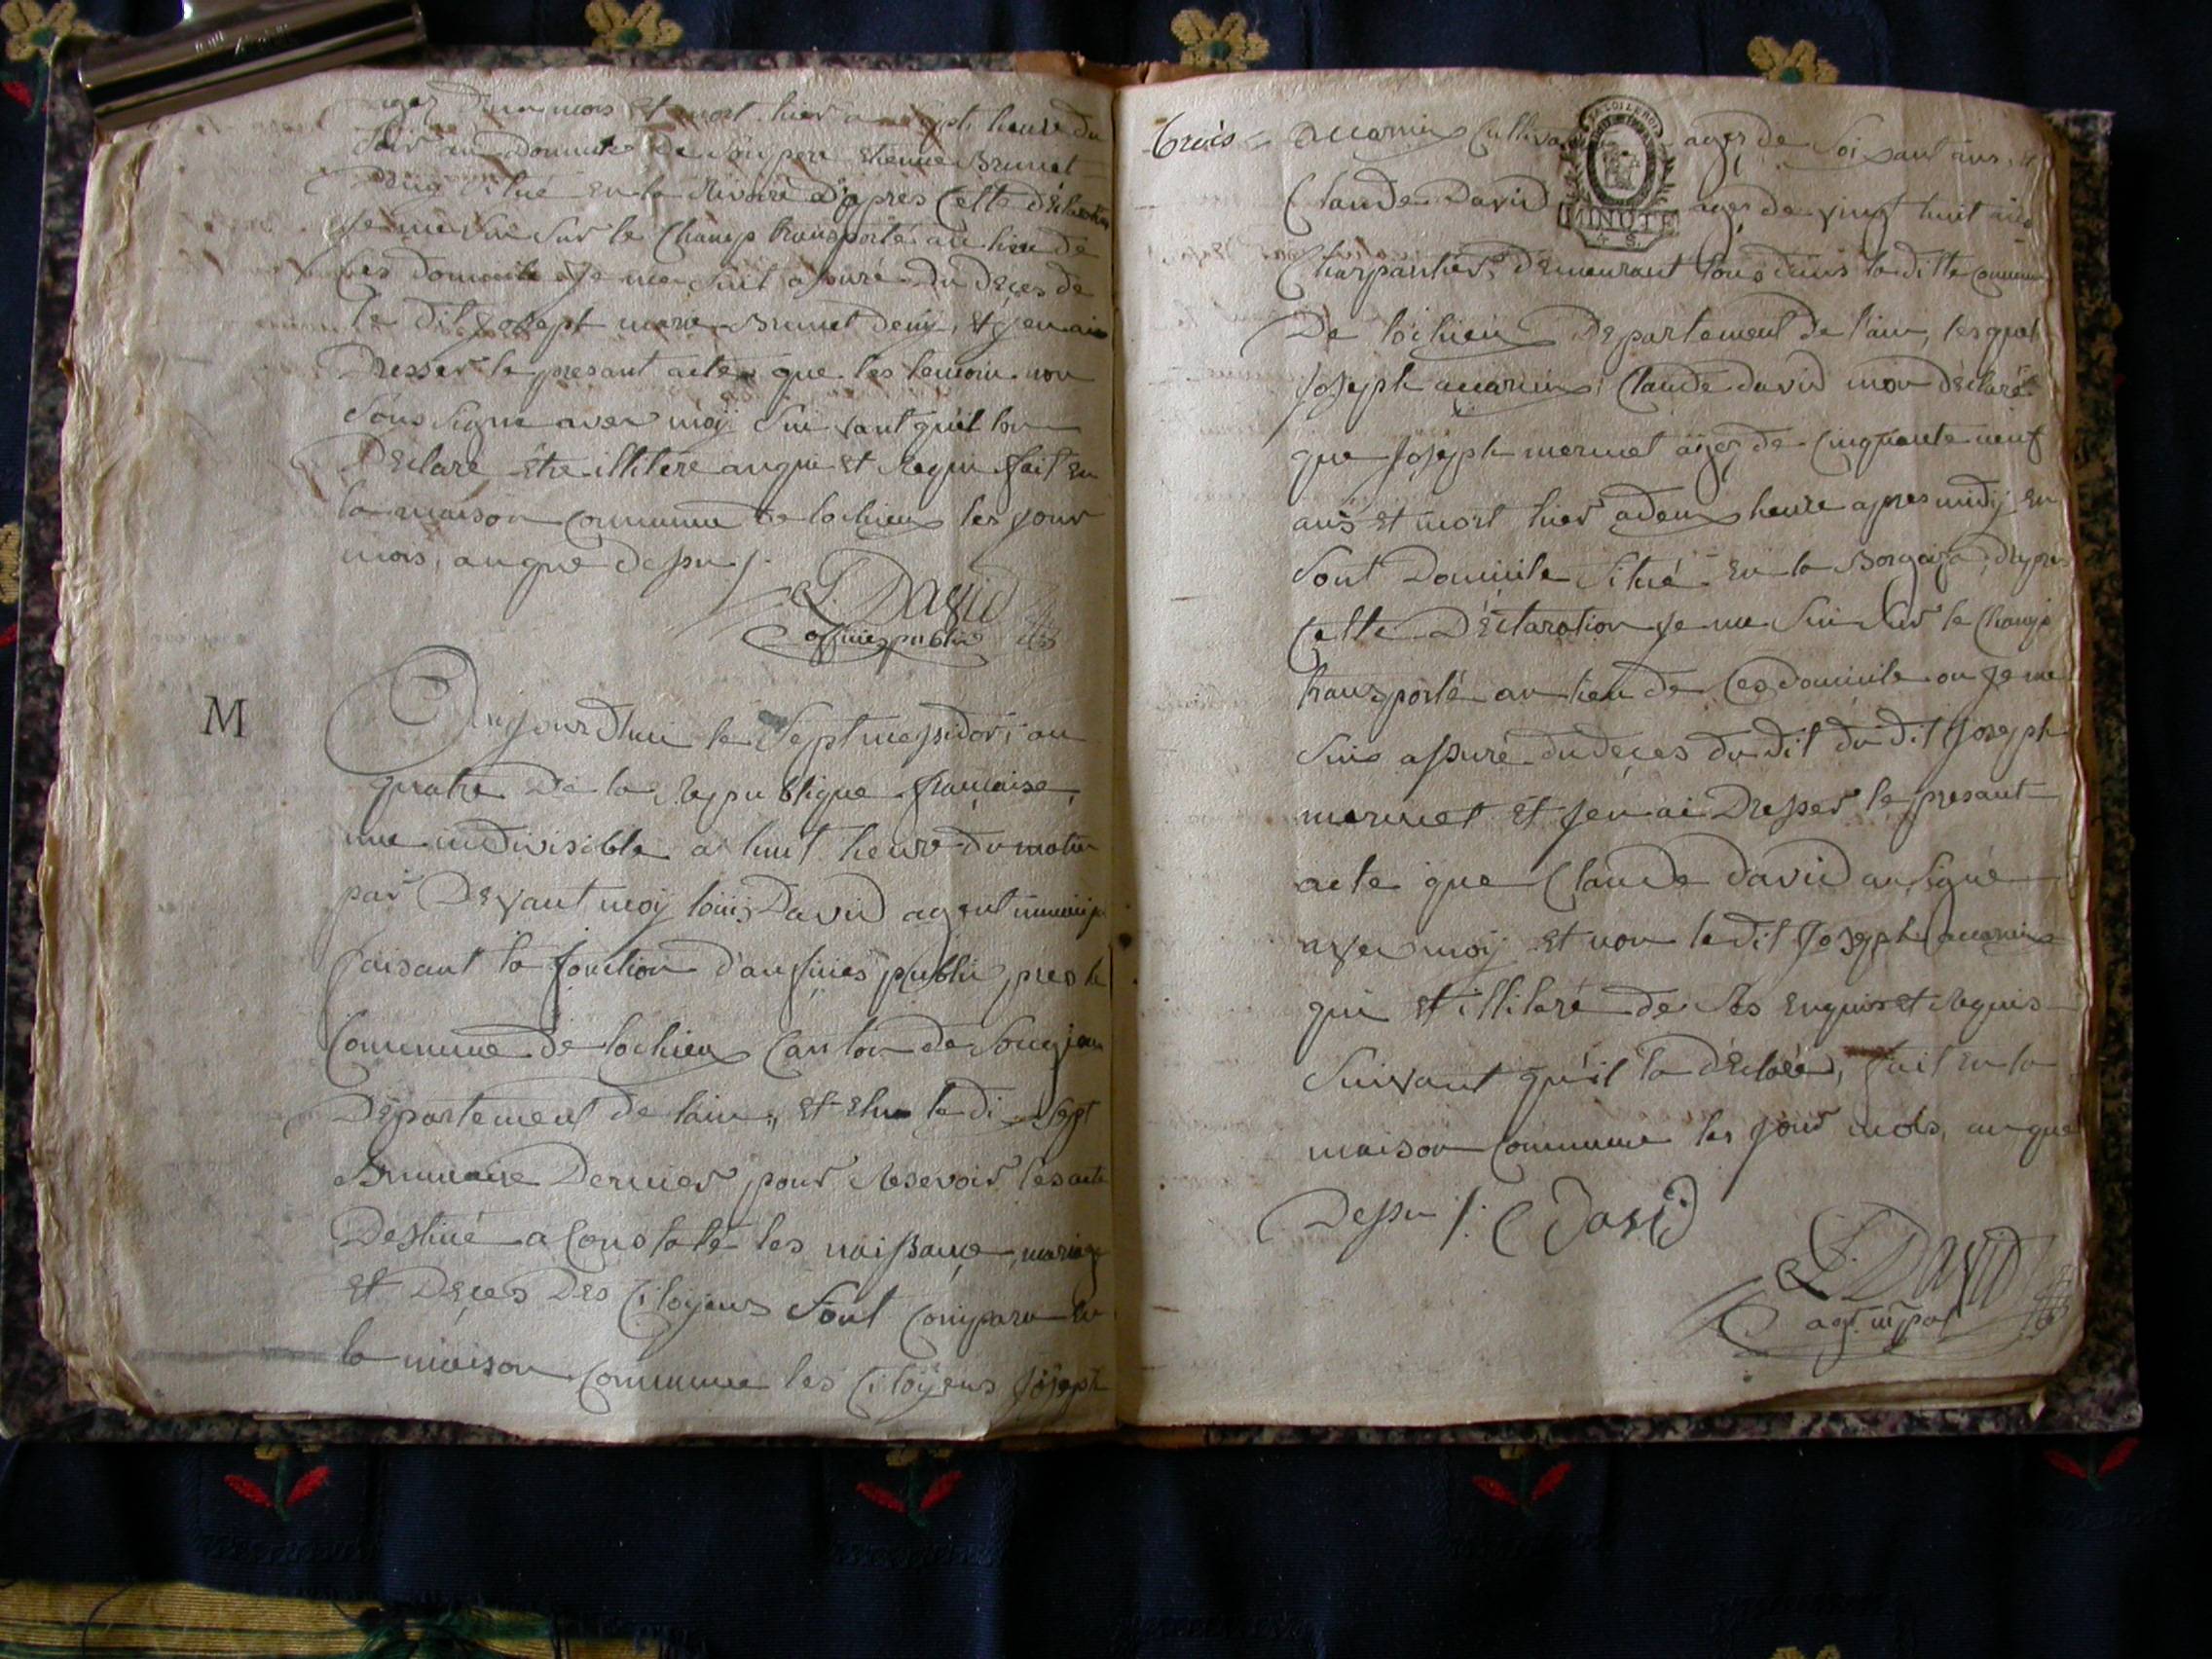 agez d'un mois et mort hier a sept heure du
soir au domicile de son pere etienne Brunet
deny situé en la Riviere d'apres Cette déclaration
Je me sui sur le Champ transporté au lieu de
Ces domicile Je me suit assuré du deces de
le dit joseph marie Brunet deny, et j'en ai
Dresser le presant acte que les temoin non
Sous Signe avec moÿ Suivant qu'il lon
Declare être illitére anquie et Requi fait en
la maison commune de lochieu les jour
mois, an que dessus /.
L. David
officies public
M
Aujourd'hui le sept messidor, an
quatre de la Republique francaise,
une indivisible a huit heure du matin
par Devant moÿ louis David agent municip
faisant la fonction d'aufficies public pres la
Commune de lochieu Canton de Songieu
Département de lain, et elu le di sept
Brumaire Dernier pour Resevoir les acte
Destiné a Constaté les naissance, mariage
et Deces Des Citoyens Sont Comparu en
la maison Commune les Citoÿens Joseph
trois = accarier Cultiva agez de Soixant ans, et
Claude David agez de vingt huit ans
MINUTE
4 S.
Charpantier, demeurant tous deus la ditte Commune
De lochieu Departement de l'ain, lesquel
Joseph accarier, Claude david mon déclaré
que Joseph mermet agez de Cinquante neuf
ans et mort hier a deux heure apres midÿ en
Sont Domicile Situé en la d'apres
Cette Déclaration je me Sui Sur le Champ
transporté au lieu de Ces domicile ou Je me
Suis assuré du deces du dit du dit Joseph
mermet et J'en ai Dresser le presant
acte que Claude David au signé
avec moÿ et non le dit Joseph accarier
qui et illitaré de Ses enquis et Requis
Suivant qu'il la déclaré, fait en la
maison Commune les jour mois, an que
Dessu /. C David
L. David
agt. mpal